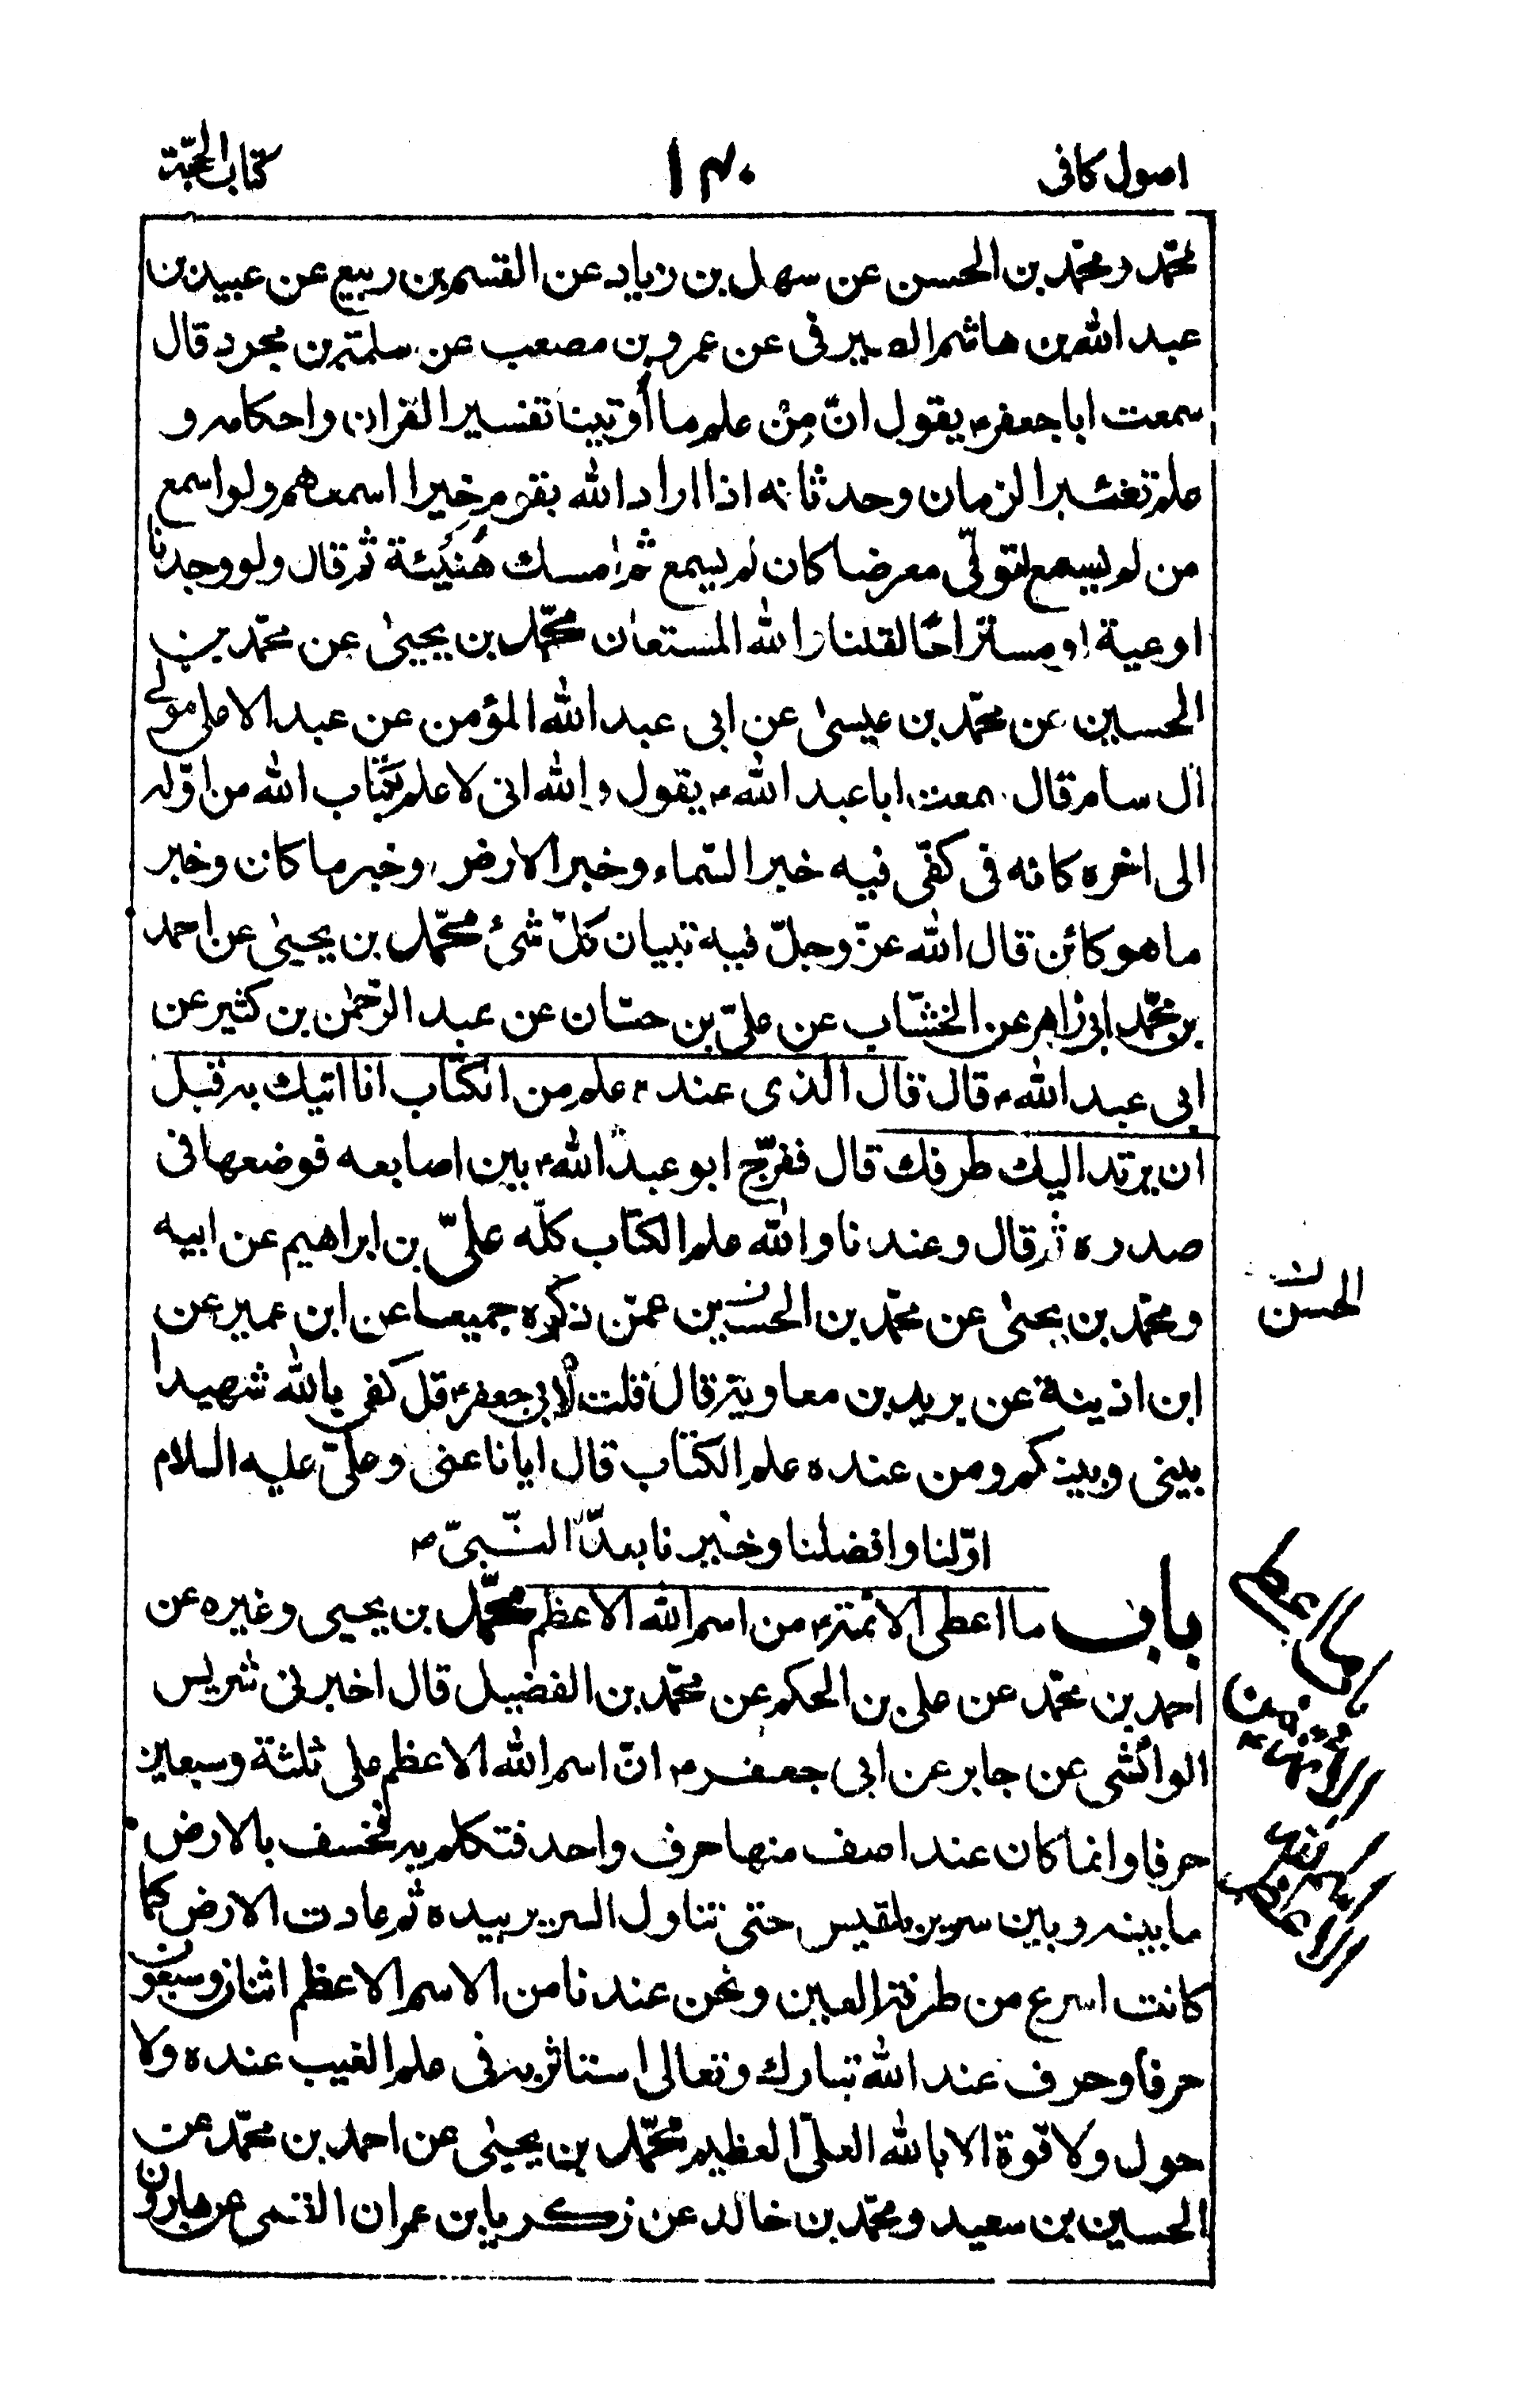 اصول كافى ١٤٠ كتاب الحجّة
محمّد ومحمّد بن الحسن عن سهل بن زياد عن القسم بن ربيع عن عبيد بن
عبد الله بن هاشم الصيرفى عن عمرو بن مصعب عن سلمة بن محرد قال
سمعت ابا جعفرؑ يقول انّ مِنْ علم ما أوتينا تفسير القران واحكامه و
علم تغير الزمان وحدثانه اذا اراد الله بقوم خيرا اسمعهم ولو اسمع
من لم يسمع لتولّى معرضا كان لم يسمع ثم امسك هُنيئة ثم قال ولو وجدنا
اوعية او مستراحًا لقلنا والله المستعان محمّد بن يحيىٰ عن محمّد بن
الحسين عن محمّد بن عيسىٰ عن ابى عبد الله المؤمن عن عبد الاعلى مولى
آل سام قال سمعت ابا عبد اللهؑ يقول والله انى لاعلم كتاب الله من اوّله
الى اخره كانه فى كفّى فيه خبر السّماء وخبر الارض وخبر ما كان وخبر
ما هو كائن قال الله عزّ وجلّ فيه تبيان كلّ شئ محمّد بن يحيىٰ عن احمد
بن محمّد ابى زاهر عن الخشّاب عن علىّ بن حسّان عن عبد الرّحمٰن بن كثير عن
ابى عبد اللهؑ قال قال الذى عنده علم من الكتاب انا اتيك به قبل
ان يرتد اليك طرفك قال ففرّج ابو عبد اللهؑ بين اصابعه فوضعها فى
صدره ثم قال وعندنا والله علم الكتاب كلّه علىّ بن ابراهيم عن ابيه
ومحمّد بن يحيىٰ عن محمّد بن الحسين عمّن ذكره جميعا عن ابن عمير عن
الحسن
ابن اذينة عن بريد بن معاوية قال قلت لابى جعفرؑ قل كفى بالله شهيدا
بينى وبينكم ومن عنده علم الكتاب قال ايانا عنى وعلىّ عليه السلام
اوّلنا وافضلنا وخيرنا بعد النّبىّؐ
باب ما اعطى الائمةؑ من اسم الله الاعظم محمّد بن يحيى وغيره عن
باب ما اعطى الائمةؑ من اسم الله الاعظم
احمد بن محمّد عن على بن الحكم عن محمّد بن الفضيل قال اخبرنى شريس
الوائشى عن جابر عن ابى جعفرؑ انّ اسم الله الاعظم على ثلثة وسبعين
حرفا وانما كان عند اصف منها حرف واحد فتكلم به فخسف بالارض
ما بينه وبين سرير بلقيس حتى تناول السرير بيده ثم عادت الارض كما
كانت اسرع من طرفة العين ونحن عندنا من الاسم الاعظم اثنان وسبعون
حرفا وحرف عند الله تبارك وتعالى استاثر به فى علم الغيب عنده ولا
حول ولا قوة الا بالله العلىّ العظيم محمّد بن يحيىٰ عن احمد بن محمّد عن
الحسين بن سعيد ومحمّد بن خالد عن زكريا بن عمران القمى عن هارون